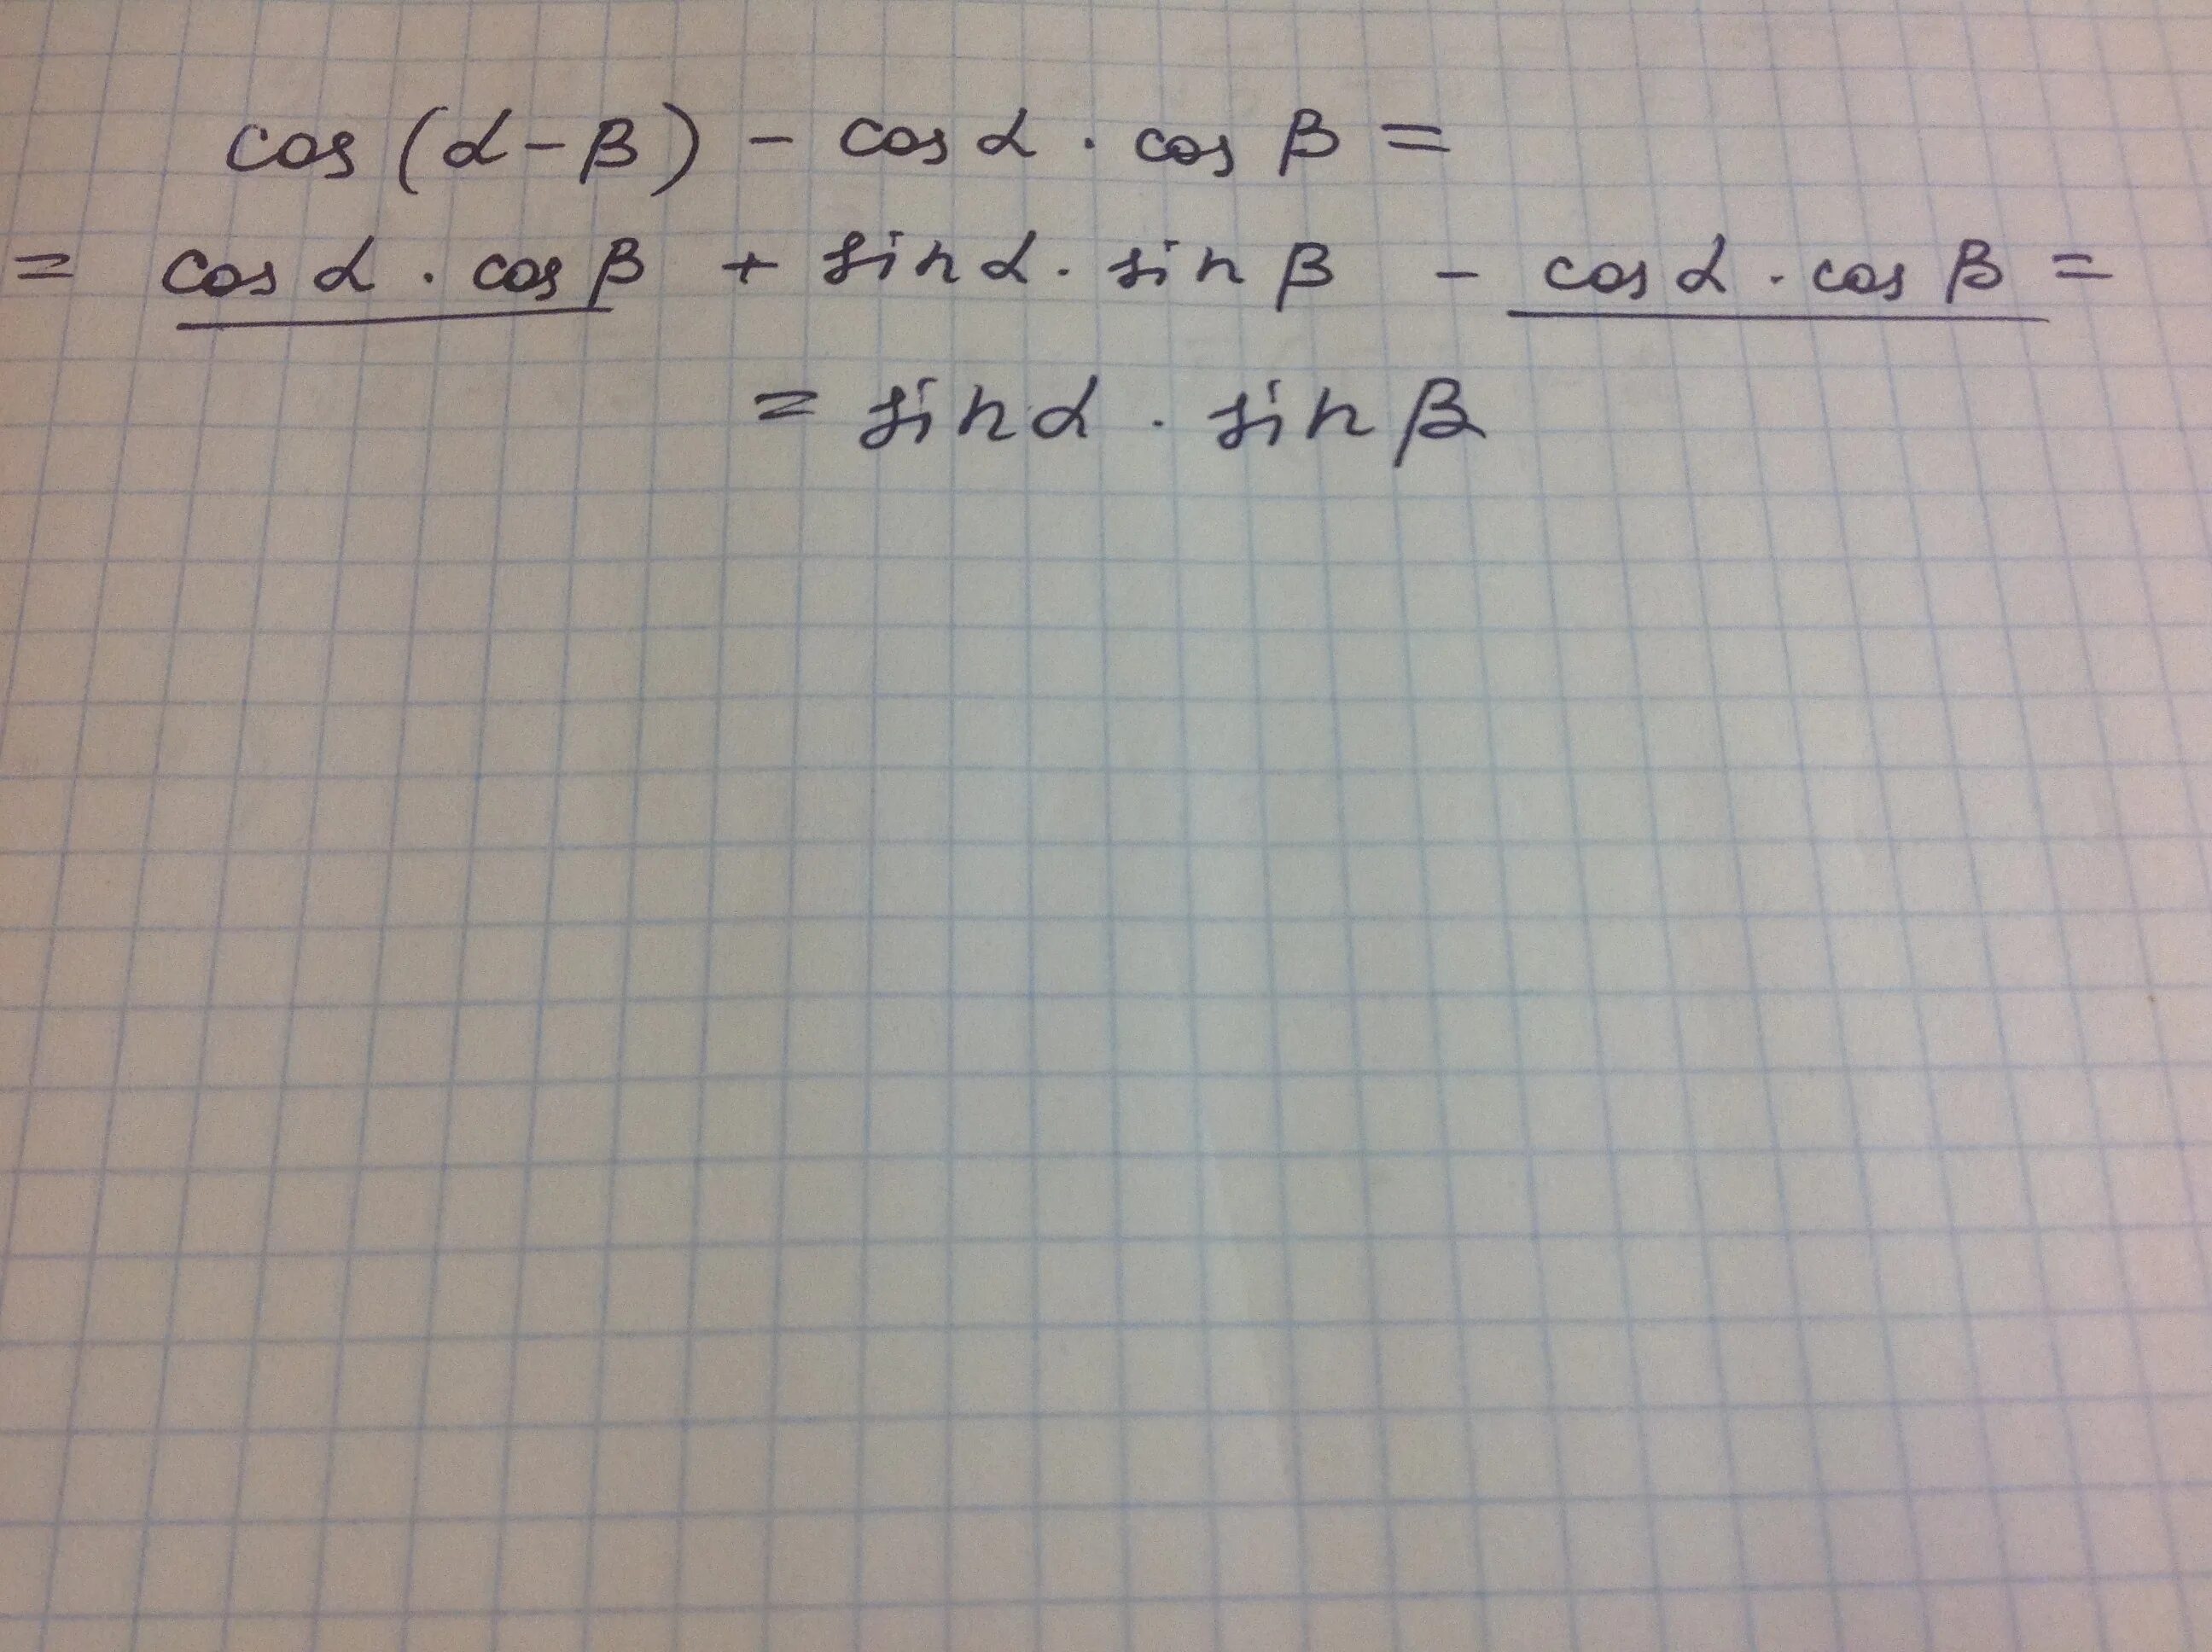 cos (α - β) - cos α · cos β =
= cos α · cos β + sin α · sin β - cos α · cos β =
= sin α · sin β